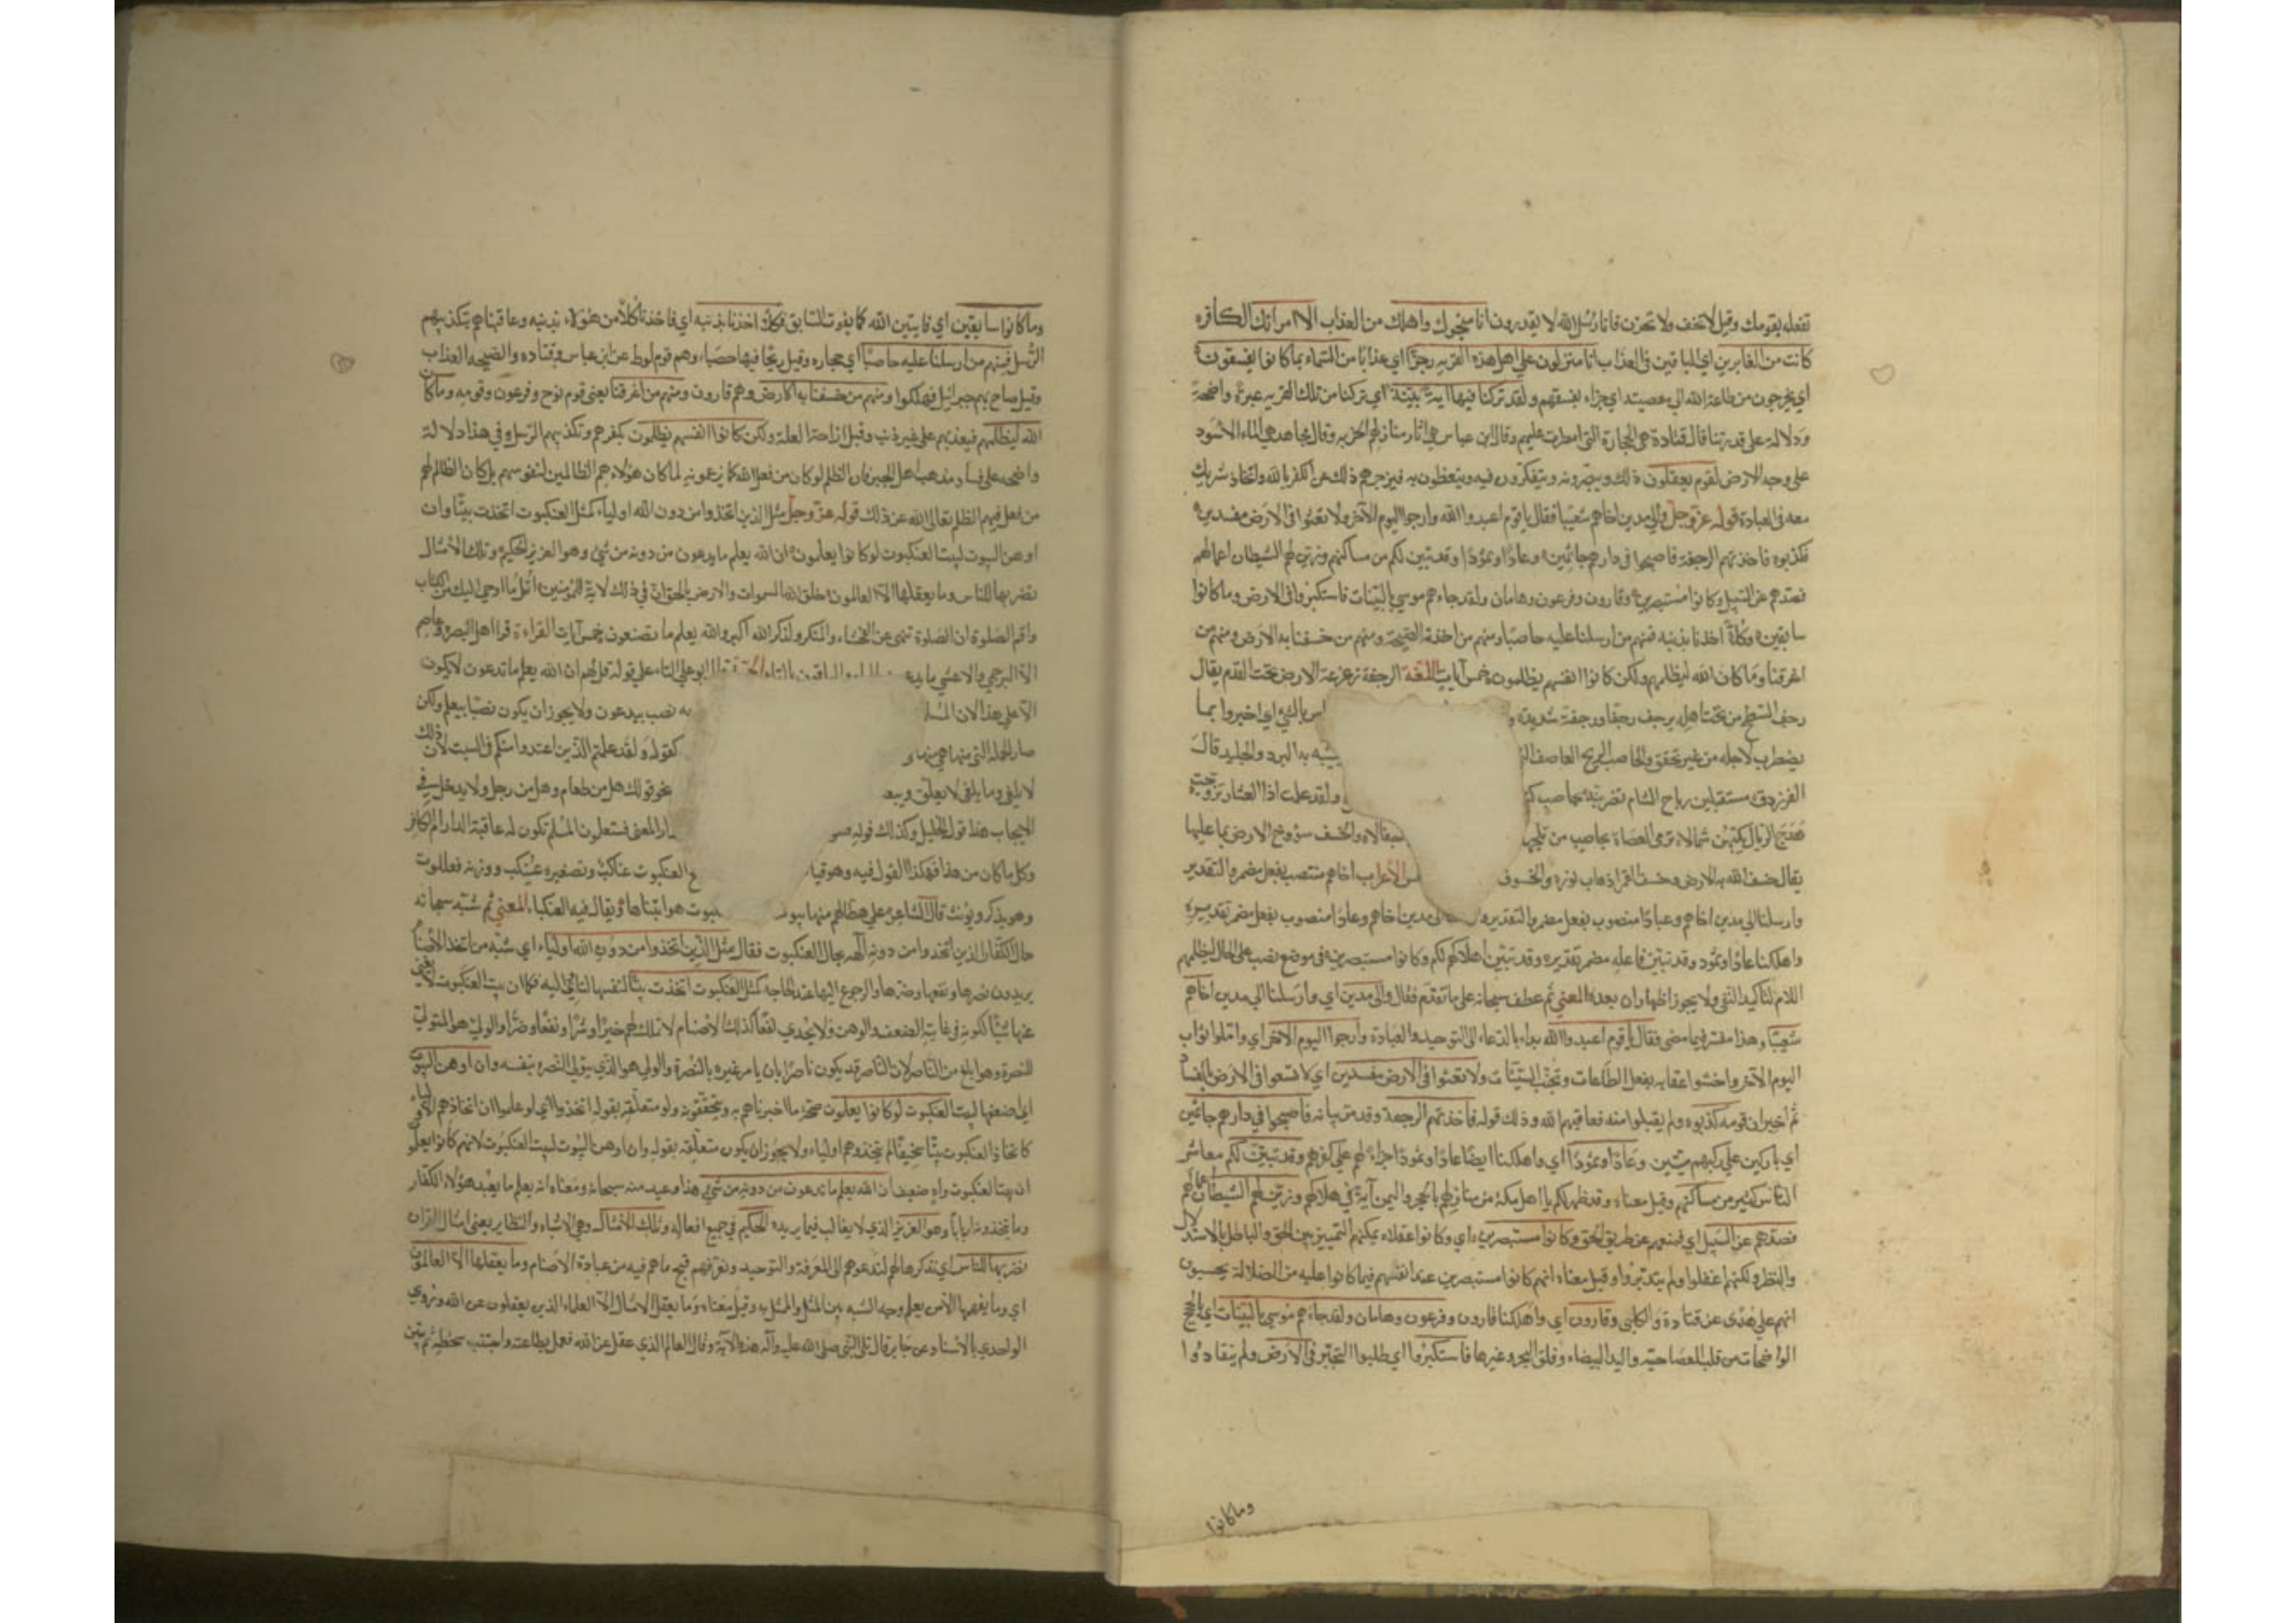 تفعله بقومك وقيل لا تخف ولا تحزن فانا رسل الله لا يقدرون انا منجوك واهلك من العذاب الا امراتك الكافره
كانت من الغابرين اي الباقين في العذاب انا منزلون على اهل هذه القريه رجزا اي عذابا من السماء بما كانوا يفسقون
اي يخرجون من طاعة الله الى معصيته اي جزاء بفسقهم ولقد تركنا منها اية بينة اي تركنا من تلك القريه عبرة واضحة
ودلالة على قدرتنا قال قتادة هي الحجارة التي امطرت عليهم وقال ابن عباس هي اثار منازلهم الخربه وقال مجاهد هي الماء الاسود
على وجه الارض لقوم يعقلون ذلك ويبصرونه ويتفكرون فيه ويتعظون به فيزجرهم ذلك عن الكفر بالله واتخاذ شريك
معه في العبادة قوله عز وجل والى مدين اخاهم شعيبا فقال يا قوم اعبدوا الله وارجوا اليوم الآخر ولا تعثوا في الارض مفسدين
فكذبوه فاخذتهم الرجفة فاصبحوا في دارهم جاثمين وعادا وثمودا وقد تبين لكم من مساكنهم وزين لهم الشيطان اعمالهم
فصدهم عن السبيل وكانوا مستبصرين وقارون وفرعون وهامان ولقد جاءهم موسى بالبينات فاستكبروا في الارض وما كانوا
سابقين وكلا اخذنا بذنبه فمنهم من ارسلنا عليه حاصبا ومنهم من اخذته الصيحة ومنهم من خسفنا به الارض ومنهم من
اغرقنا وما كان الله ليظلمهم ولكن كانوا انفسهم يظلمون خمس آيات اللغة الرجفة زعزعة الارض تحت القدم يقال
رجف السطح من تحت اهله يرجف رجفا ورجفة شديدة بالشئ اي اخبروا بما
يضطرب لاجله من غير تحقق والحاصب الريح العاصف يشبه به البرد والجليد قال
الفرزدق مستقبلين رياح الشام تضربنا بحاصب ولقد علمت اذا العشار تروحت
بحاصب من ثلجها والخسف سؤوخ الارض بما عليها
يقال خسف الله به الارض وخسف القمر اذهاب نوره والخسوف الاعراب اخاهم منتصب بفعل مضمر والتقدير
وارسلنا الى مدين اخاهم وعادا منصوب بفعل مضمر والتقدير مدين اخاهم وعادا منصوب بفعل مضمر تقديره
واهلكنا عادا وثمود وقد تبين فاعله مضمر تقديره وقد تبين اهلاكهم لكم وكانوا مستبصرين في موضع نصب على الحال ليظلمهم
اللام لتاكيد النفي ولا يجوز اظهار ان بعده المعنى ثم عطف سبحانه على ما تقدم فقال والى مدين اي وارسلنا الى مدين اخاهم
شعيبا وهذا مفسر فيما مضى فقال يا قوم اعبدوا الله بداء بالدعاء الى التوحيد والعبادة وارجوا اليوم الاخر اي واملوا ثواب
اليوم الآخر واخشوا عقابه بفعل الطاعات وتجنب السيئات ولا تعثوا في الارض مفسدين اي لا تسعوا في الارض بالفساد
ثم اخبر ان قومه كذبوه ولم يقبلوا منه فعاقبهم الله وذلك قوله فاخذتهم الرجفة وقد مر بيانه فاصبحوا في دارهم جاثمين
اي باركين على ركبهم ميتين وعادا وثمودا اي واهلكنا ايضا عادا وثمودا جزاء لهم على كفرهم وقد تبين لكم معاشر
الناس كثير من مساكنهم وقيل معناه وقد ظهر لكم يا اهل مكة من منازلهم بالحجر واليمن آية في هلاكهم وزين لهم الشيطان اعمالهم
فصدهم عن السبيل اي فمنعهم عن طريق الحق وكانوا مستبصرين اي وكانوا عقلاء يمكنهم التمييز بين الحق والباطل بالاستدلال
والنظر ولكنهم اغفلوا ولم يتدبروا وقيل معناه انهم كانوا مستبصرين عند انفسهم فيما كانوا عليه من الضلالة يحسبون
انهم على هدى عن قتادة والكلبي وقارون اي واهلكنا قارون وفرعون وهامان ولقد جاءهم موسى بالبينات اي بالحجج
الواضحات من قلب العصا حية واليد البيضاء وفلق البحر وغيرها فاستكبروا اي طلبوا التجبر في الارض ولم ينقادوا
وما كانوا
وما كانوا سابقين اي فايتين الله كما يفوت السابق فكلا اخذنا بذنبه اي فاخذنا كلا من هؤلاء بذنبه وعاقبناهم بتكذيبهم
الرسل فمنهم من ارسلنا عليه حاصبا اي حجاره وقيل ريحا فيها حصباء وهم قوم لوط عن ابن عباس وقتاده والصيحه العذاب
وقيل صاح بهم جبرائيل فهلكوا ومنهم من خسفنا به الارض وهم قارون ومنهم من اغرقنا يعني قوم نوح وفرعون وقومه وما كان
الله ليظلمهم فيعذبهم على غير ذنب وقبل ازاحة العلة ولكن كانوا انفسهم يظلمون بكفرهم وتكذيبهم الرسل وفي هذا دلالة
واضحه على فساد مذهب اهل الجبر فان الظلم لو كان من فعل الله كما يزعمونه لما كان هؤلاء هم الظالمين لنفوسهم بل كان الظالم لهم
من فعل فيهم الظلم تعالى الله عن ذلك قوله عز وجل مثل الذين اتخذوا من دون الله اولياء كمثل العنكبوت اتخذت بيتا وان
اوهن البيوت لبيت العنكبوت لو كانوا يعلمون ان الله يعلم ما يدعون من دونه من شئ وهو العزيز الحكيم وتلك الامثال
نضربها للناس وما يعقلها الا العالمون خلق الله السموات والارض بالحق ان في ذلك لاية للمؤمنين اتل ما اوحي اليك من الكتاب
واقم الصلوة ان الصلوة تنهى عن الفحشاء والمنكر ولذكر الله اكبر والله يعلم ما تصنعون خمس آيات القراءة قرا اهل البصره وعاصم
الا البرجمي والاعشى ما يدعون ابو علي التاء على قوله قل لهم ان الله يعلم ما تدعون لا يكون
الا على هذا لان به نصب بيدعون ولا يجوز ان يكون نصبا بيعلم ولكن
صار الجملة التي منها هي كقوله ولقد علمتم الذين اعتدوا منكم في السبت لان ذلك
لا يلغى وما يلغى لا يعلق نحو قولك هل من طعام وهل من رجل ولا يدخل في
الايجاب هذا قول الخليل وكذلك قوله المعنى فستعلمون المسلم تكون له عاقبة الدار ام الكافر
وكل ما كان من هذا فهكذا القول فيه وهو العنكبوت عناكب وتصغيره عنيكب ووزنه فعللوت
وهو يذكر ويؤنث قال الشاعر على هطالهم منها بيوت هو ابتناها ويقال فيه العنكباء المعنى ثم شبه سبحانه
حال الكفار الذين اتخذوا من دونه آلهه بحال العنكبوت فقال مثل الذين اتخذوا من دون الله اولياء اي شبه من اتخذ الاصنام
يريدون نصرها ونفعها وضرها والرجوع اليها عند الحاجه كمثل العنكبوت اتخذت بيتا لنفسها لتأوي اليه فكما ان بيت العنكبوت لا يغني
عنها شيئا لكونه في غاية الضعف والوهن ولا يجدي نفعا كذلك الاصنام لا تملك لهم خيرا وشرا ونفعا وضرا والولي هو المتولي
للنصرة وهو ابلغ من الناصر لان الناصر قد يكون ناصرا بان يامر غيره بالنصرة والولي هو الذي يتولى النصره بنفسه وان اوهن البيوت
اي اضعفها لبيت العنكبوت لو كانوا يعلمون صحة ما اخبرناهم به ويتحققونه ولو متعلقه بقوله اتخذوا اي لو علموا ان اتخاذهم الاولياء
كاتخاذ العنكبوت بيتا سخيفا لم يتخذوهم اولياء ولا يجوز ان يكون متعلقه بقوله وان اوهن البيوت لبيت العنكبوت لانهم كانوا يعلمون
ان بيت العنكبوت واه ضعيف ان الله يعلم ما تدعون من دونه من شئ هذا وعيد منه سبحانه ومعناه انه يعلم ما يعبد هؤلاء الكفار
وما يتخذونه اربابا وهو العزيز الذي لا يغالب فيما يريده الحكيم في جميع افعاله وتلك الامثال وهي الاشباه والنظاير يعني امثال القران
نضربها للناس اي نذكرها لهم لندعوهم الى المعرفة والتوحيد ونعرفهم قبح ما هم فيه من عبادة الاصنام وما يعقلها الا العالمون
اي وما يفهمها الا من يعلم وجه الشبه بين المثل والممثل به وقيل معناه وما يعقل الامثال الا العلماء الذين يعقلون عن الله وروي
الواحدي بالاسناد عن جابر قال تلى النبي صلى الله عليه وآله هذه الآية وقال العالم الذي عقل عن الله فعمل بطاعته واجتنب سخطه ثم بين